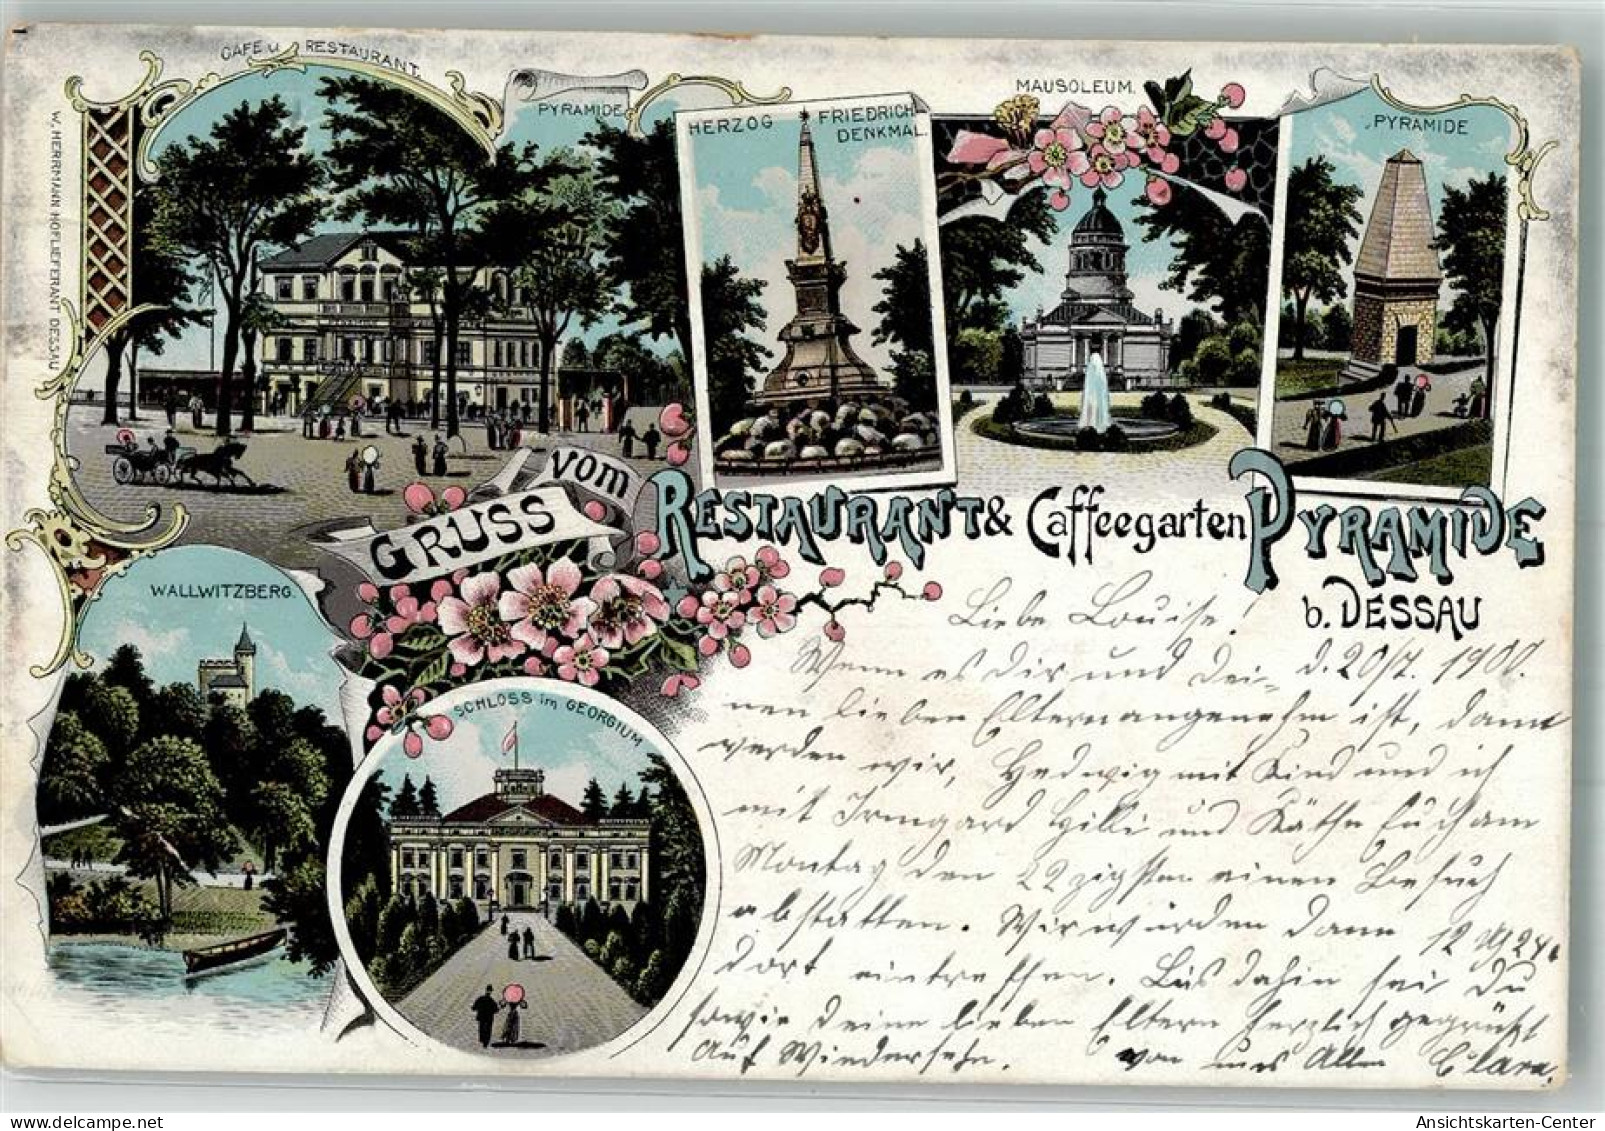 CAFE u. RESTAURANT.
PYRAMIDE.
HERZOG FRIEDRICH
DENKMAL.
MAUSOLEUM.
PYRAMIDE
W. HERRMANN HOFLIEFERANT DESSAU
GRUSS vom RESTAURANT & Caffeegarten PYRAMIDE
b. DESSAU
WALLWITZBERG.
SCHLOSS im GEORGIUM
Liebe Louise!
d. 20/7. 1900.
Wenn es Dir und Dei-
nen lieben Eltern angenehm ist, dann
werden wir, Hedwig mit Kind und ich
mit Irmgard Hilli und Käthe Euch am
Montag den 22zigsten einen Besuch
abstatten. Wir würden dann 12 Uhr 24
dort eintreffen. Bis dahin sei Du
sowie Deine lieben Eltern herzlich gegrüßt
Auf Wiedersehn. von uns Allen Clara.
Ansichtskarten-Center